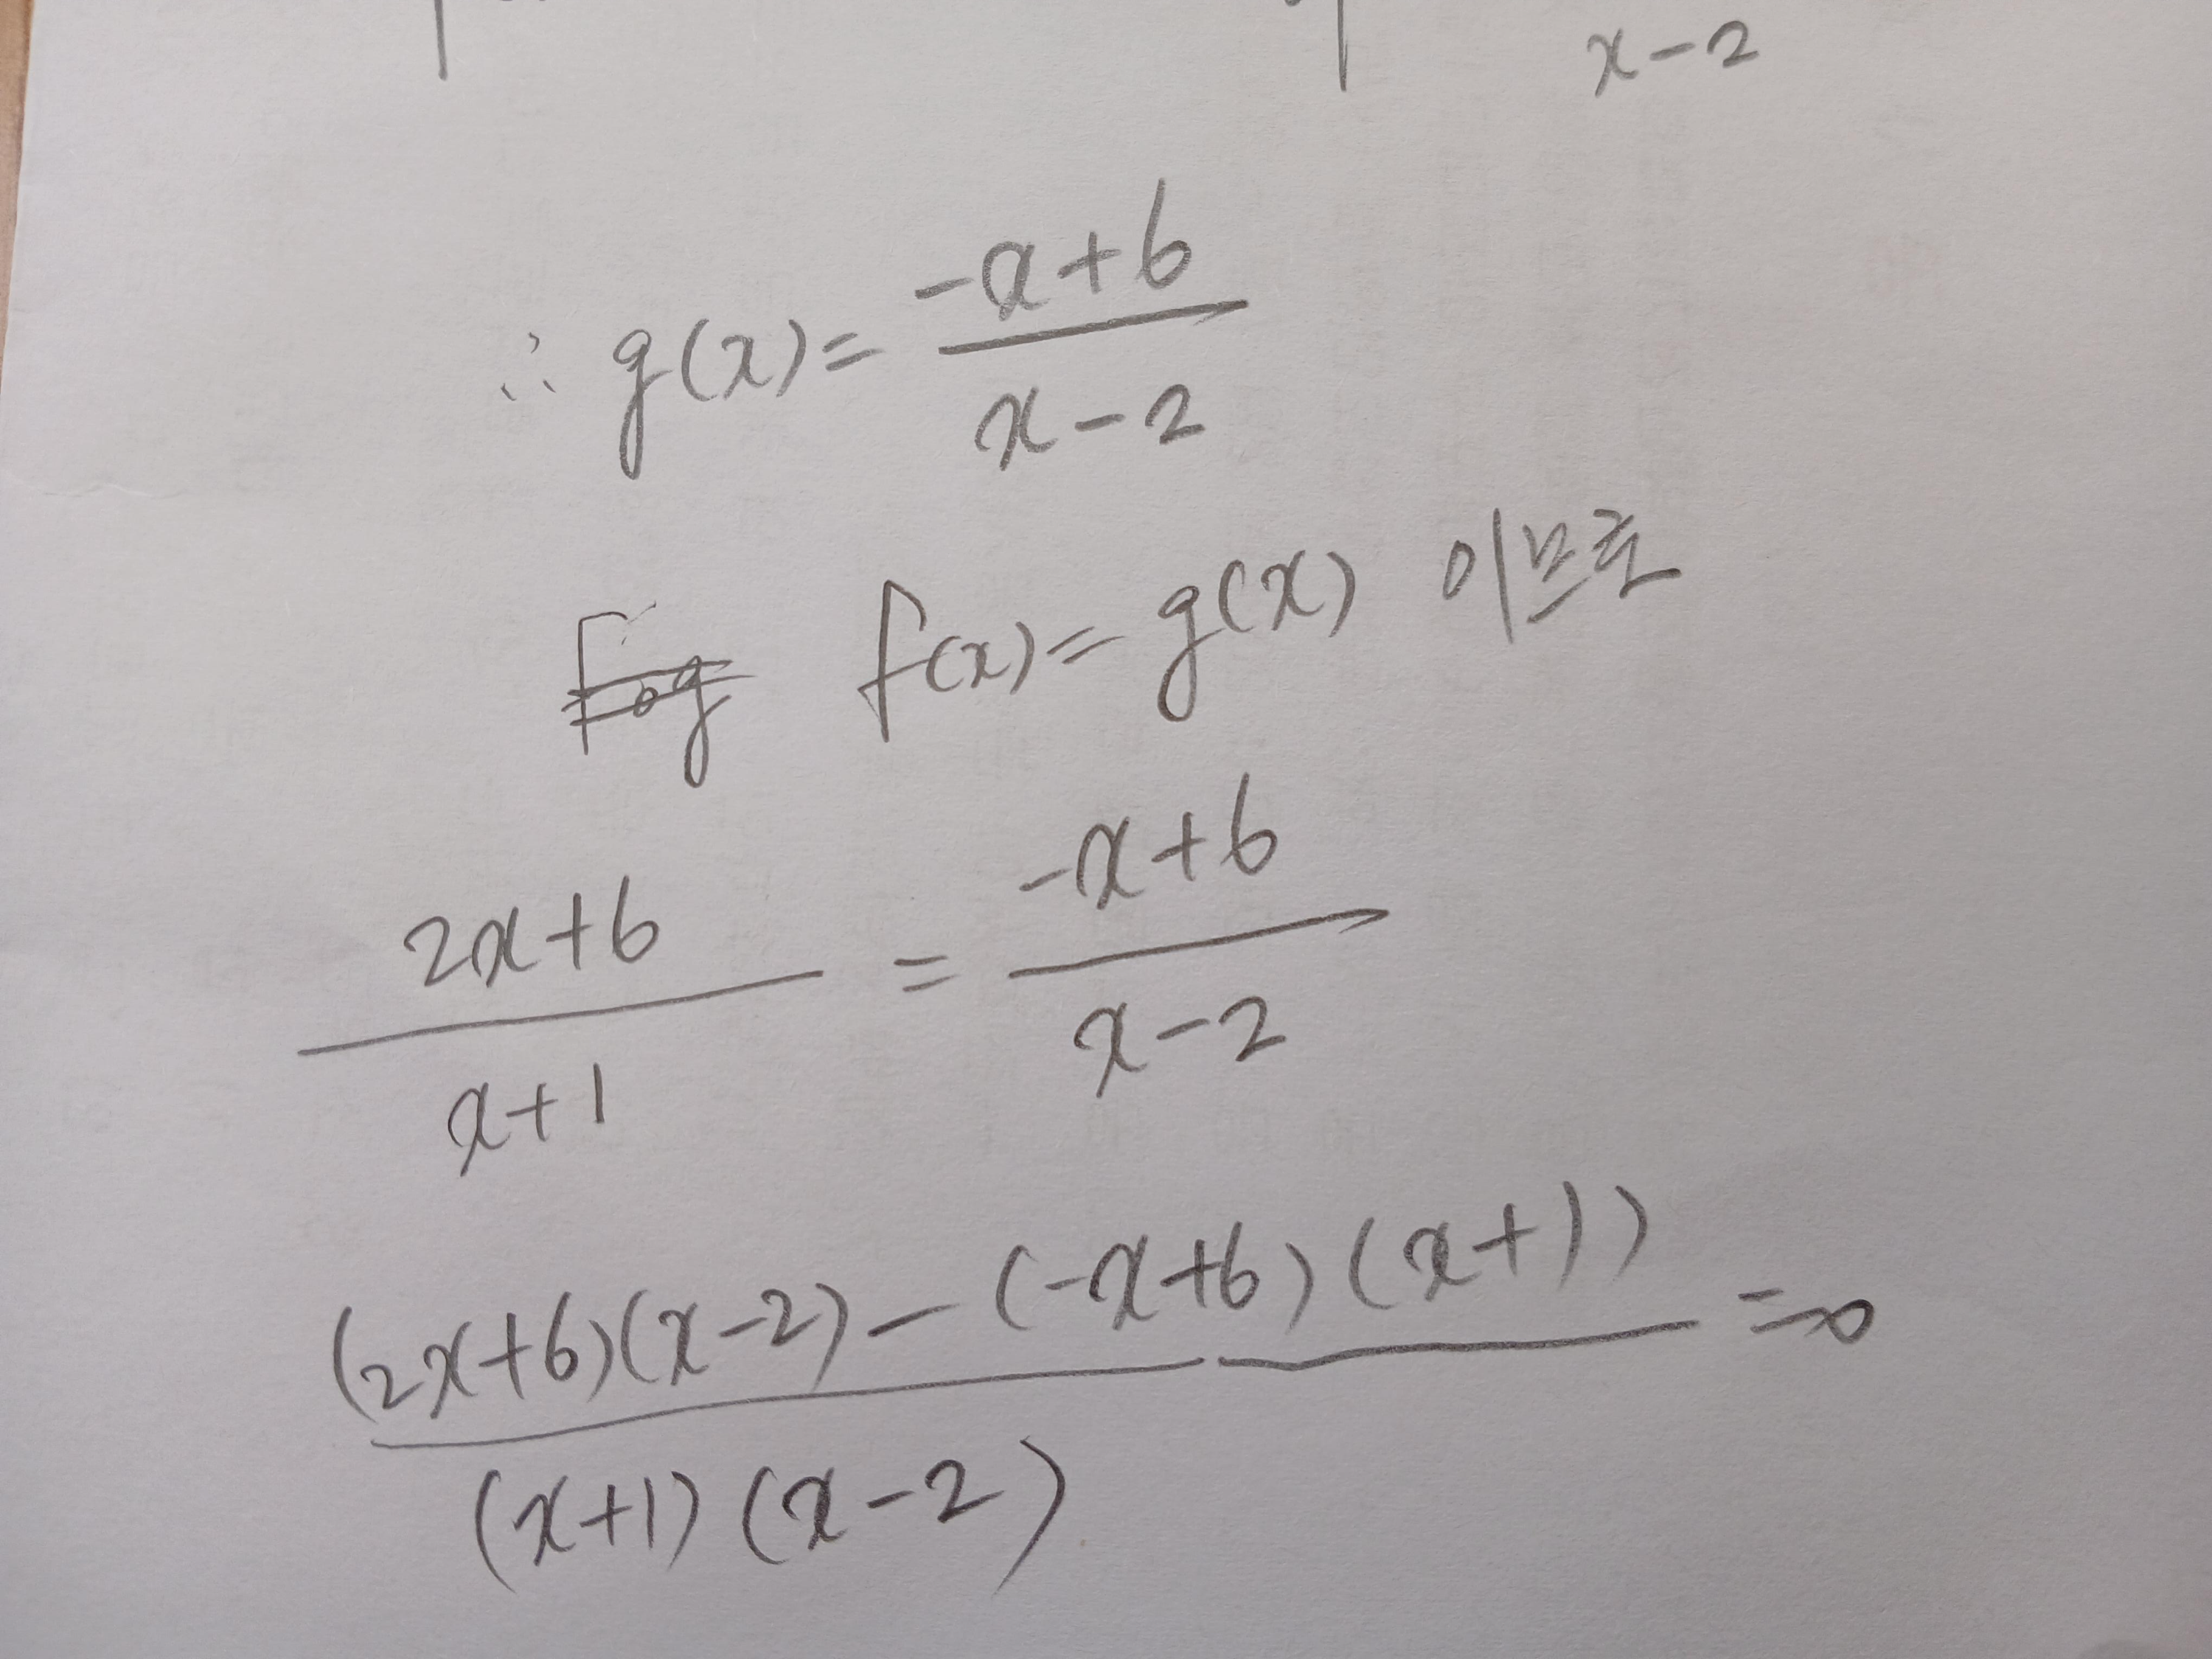 x-2
∴ g(x) = -x+6
x-2
fog f(x) = g(x) 이므로
2x+6 = -x+6
x+1 x-2
(2x+6)(x-2) - (-x+6)(x+1) = 0
(x+1)(x-2)